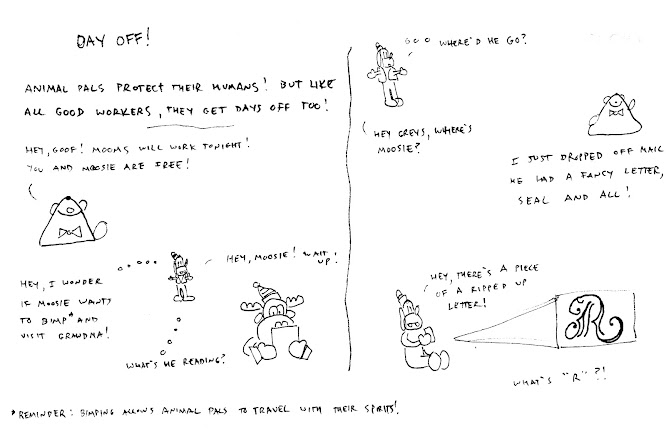 DAY OFF!
ANIMAL PALS PROTECT THEIR HUMANS! BUT LIKE
ALL GOOD WORKERS, THEY GET DAYS OFF TOO!
HEY, GOOF! MOOMS WILL WORK TONIGHT!
YOU AND MOOSIE ARE FREE!
HEY, I WONDER
IF MOOSIE WANTS
TO BIMP* AND
VISIT GRANDMA!
HEY, MOOSIE! WAIT
UP!
WHAT'S HE READING?
WHERE'D HE GO?
HEY GREYS, WHERE'S
MOOSIE?
I JUST DROPPED OFF MAIL
HE HAD A FANCY LETTER,
SEAL AND ALL!
HEY, THERE'S A PIECE
OF A RIPPED UP
LETTER!
R
WHAT'S "R"?!
*REMINDER: BIMPING ALLOWS ANIMAL PALS TO TRAVEL WITH THEIR SPIRITS!